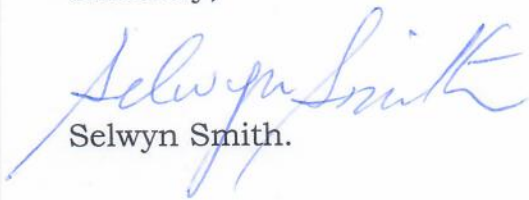 Selwyn Smith
Selwyn Smith.